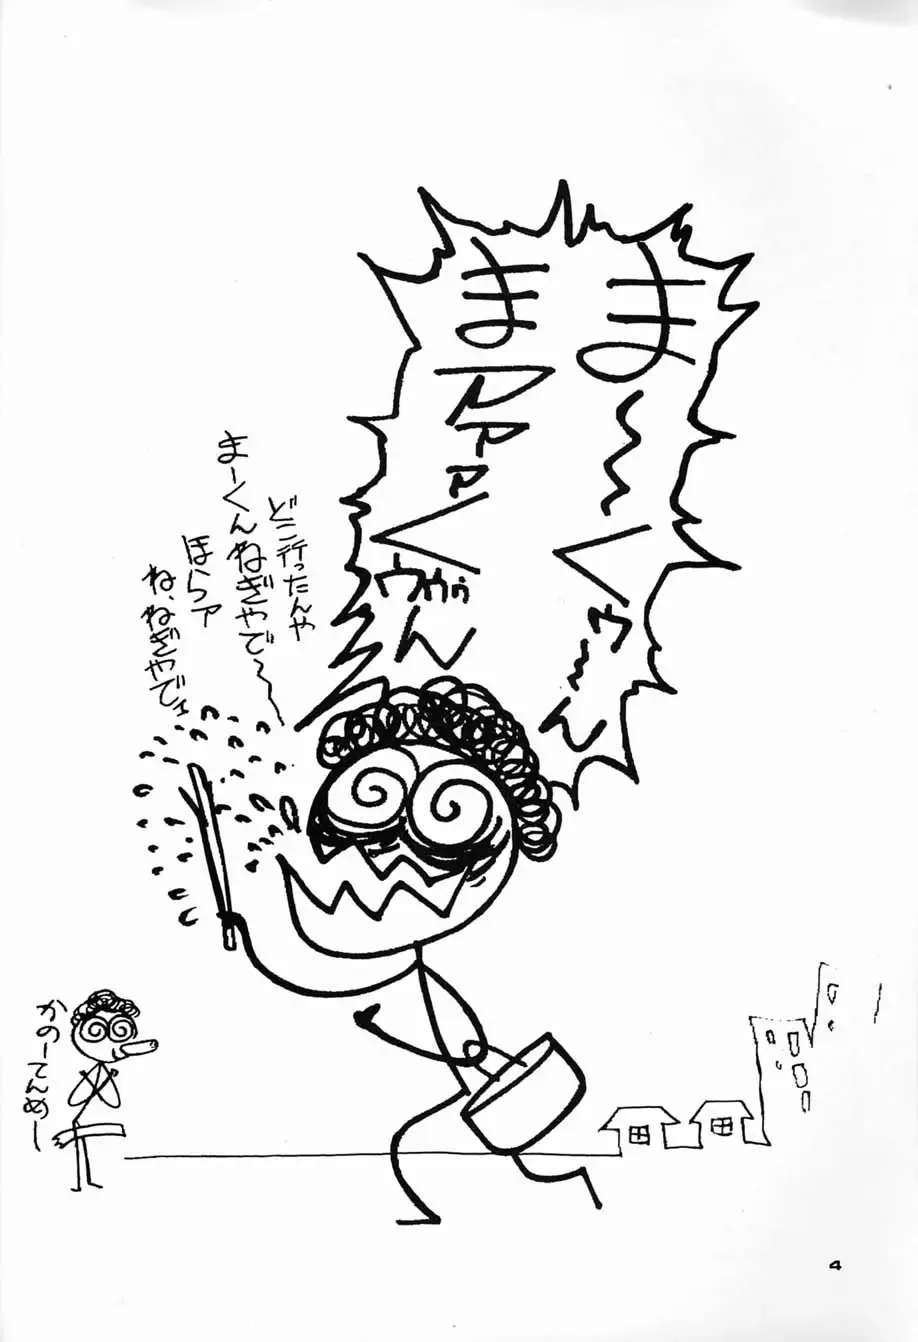 ま〜くぅ〜ん
まアァァくゥゥゥん
どこ行ったんや
まーくんねぎやで〜
ほらァ
ね、ねぎやでェ
かのーてんめー
4